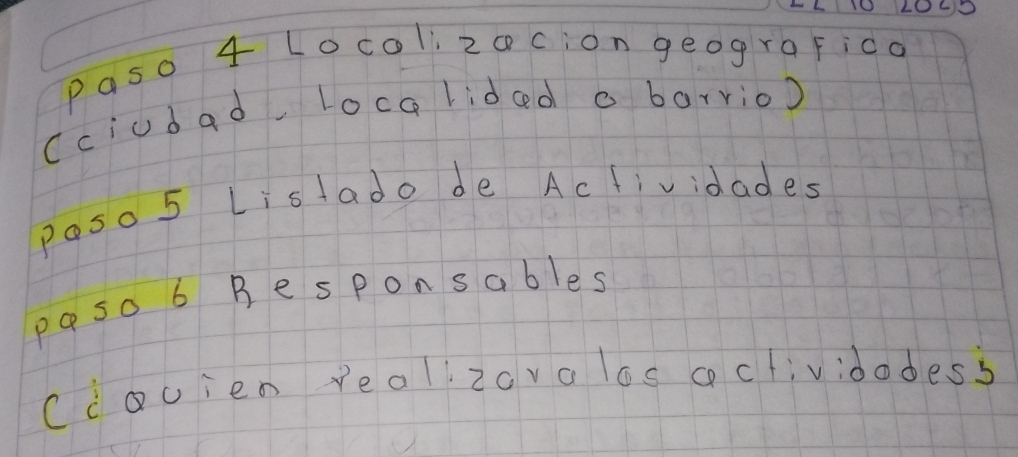 paso 4 Localizacion geografica
(ciudad, localidad o barrio)
paso 5 Listado de Actividades
paso 6 Responsables
(¿quien realizara las actividades?